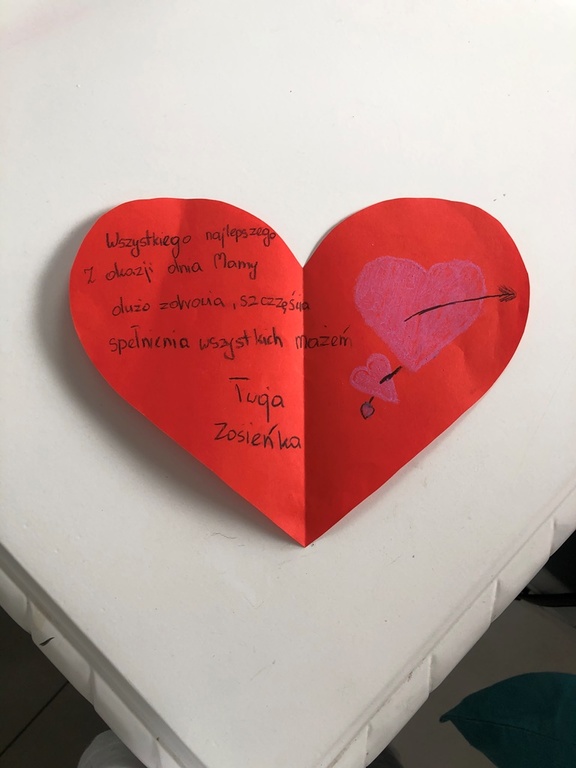 Wszystkiego najlepszego
Z okazji dnia Mamy
dużo zdrowia, szczęścia
spełnienia wszystkich mażeń
Twoja
Zosieńka